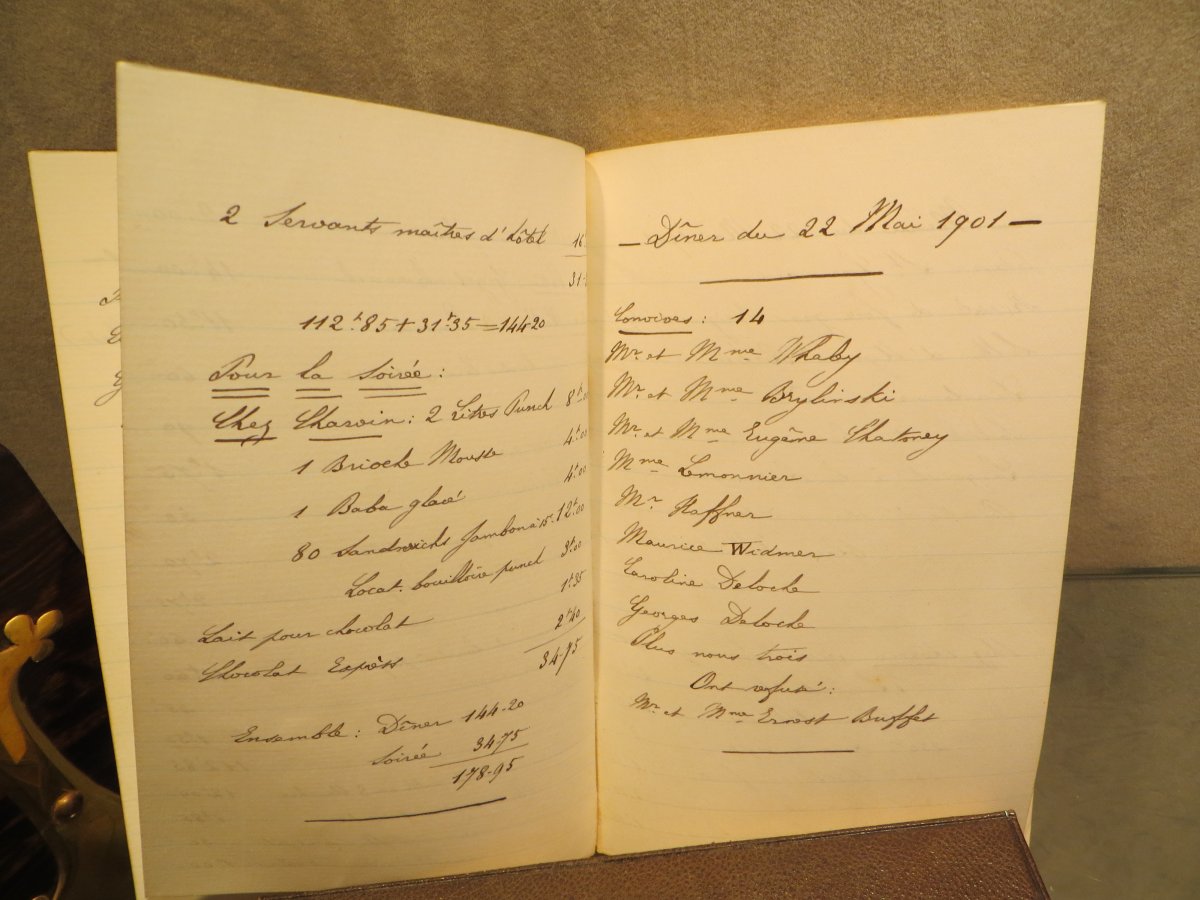 2 Servants maîtres d'hôtel 16
31-
112f.85 + 31f.35 = 144-20
Pour la Soirée :
Chez Charvin : 2 Litres Punch 8f.00
1 Brioche Mousse 4f.00
1 Baba glacé 4f.00
80 Sandwichs Jambon à 15c. 12f.00
Locat. bouilloire punch 3f.00
Lait pour chocolat 1f.35
Chocolat Express 2f.40
34-75
Ensemble : Dîner 144-20
Soirée 34-75
178-95
— Dîner du 22 Mai 1901 —
Convives : 14
Mr. et Mme Whaby
Mr. et Mme Brylinski
Mr. et Mme Eugène Chatoney
Mme Lemonnier
Mr Haffner
Maurice Widmer
Caroline Deloche
Georges Deloche
Plus nous trois
Ont refusé :
Mr. et Mme Ernest Buffet